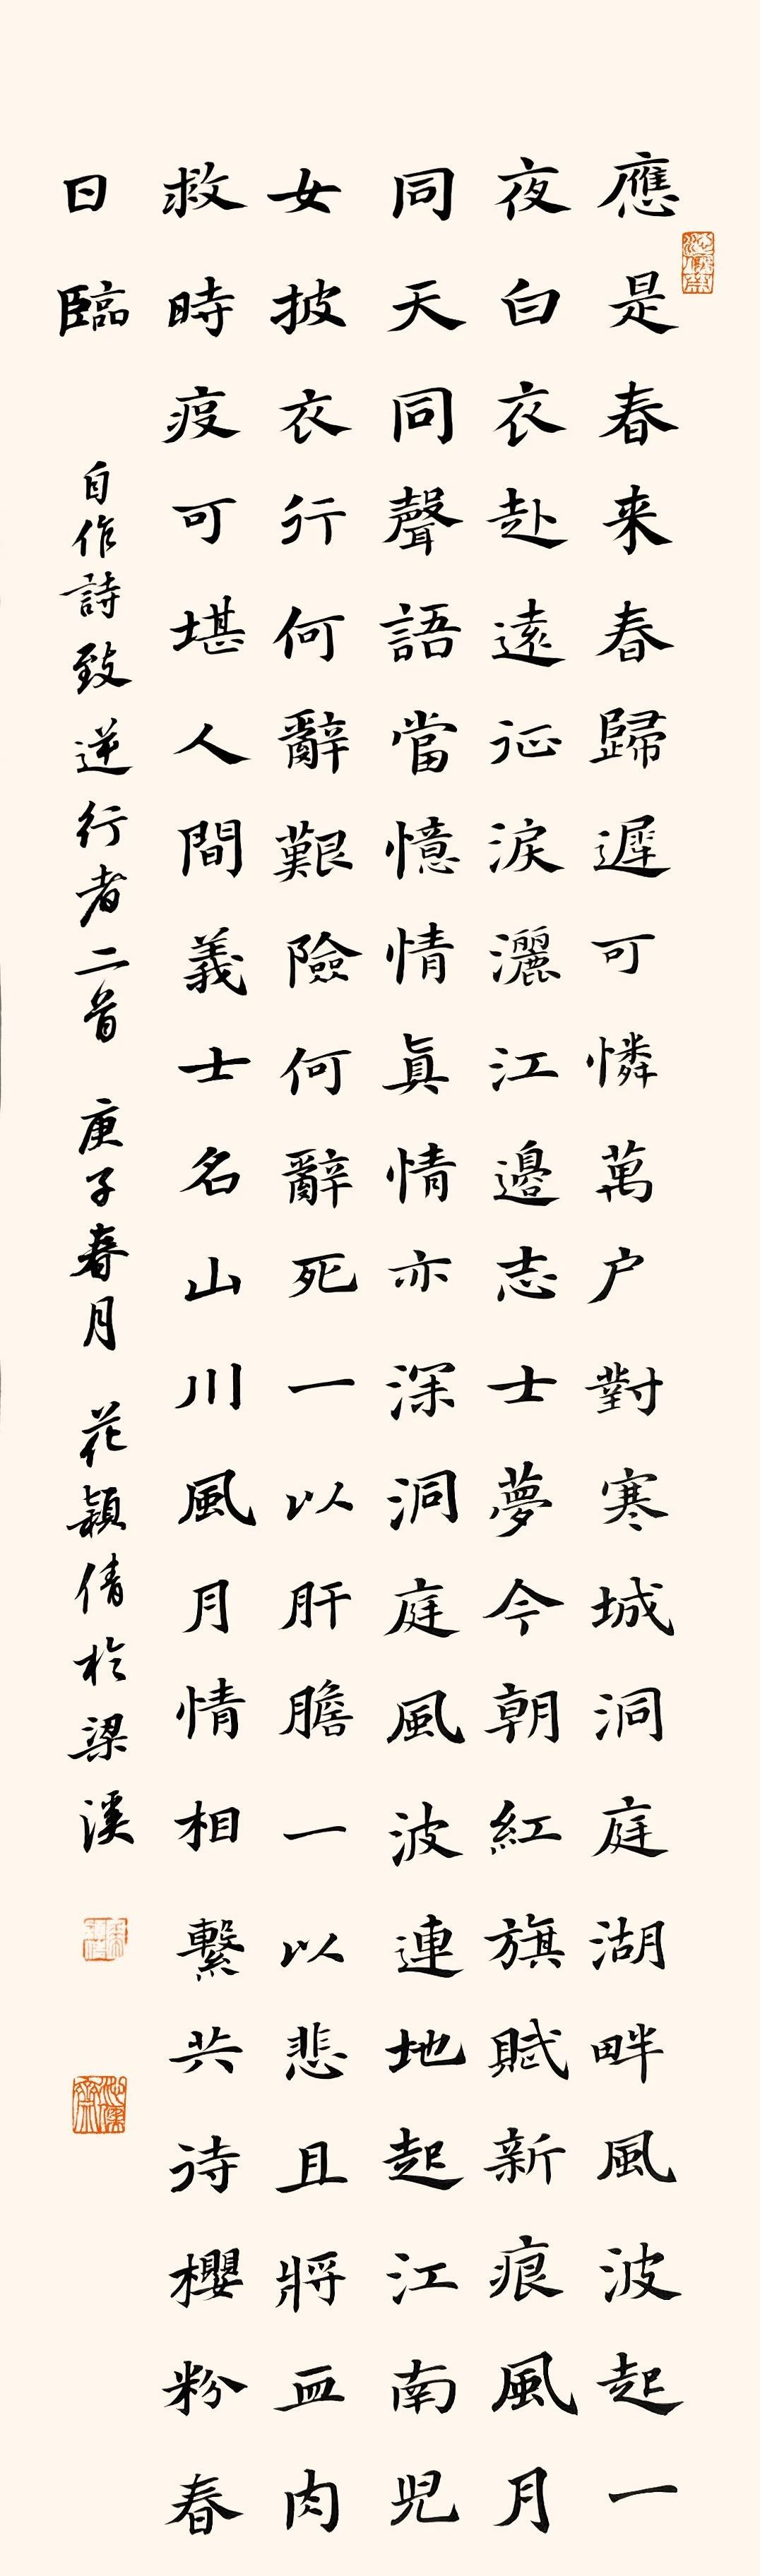 應是春来春歸遲可憐萬户對寒城洞庭湖畔風波起一
夜白衣赴遠征淚灑江邊志士夢今朝紅旗賦新痕風月
同天同聲語當憶情真情亦深洞庭風波連地起江南児
女披衣行何辭艱險何辭死一以肝膽一以悲且將血肉
救時疫可堪人間義士名山川風月情相繫共待櫻粉春
日臨
自作詩致逆行者二首 庚子春月 花穎倩於梁溪